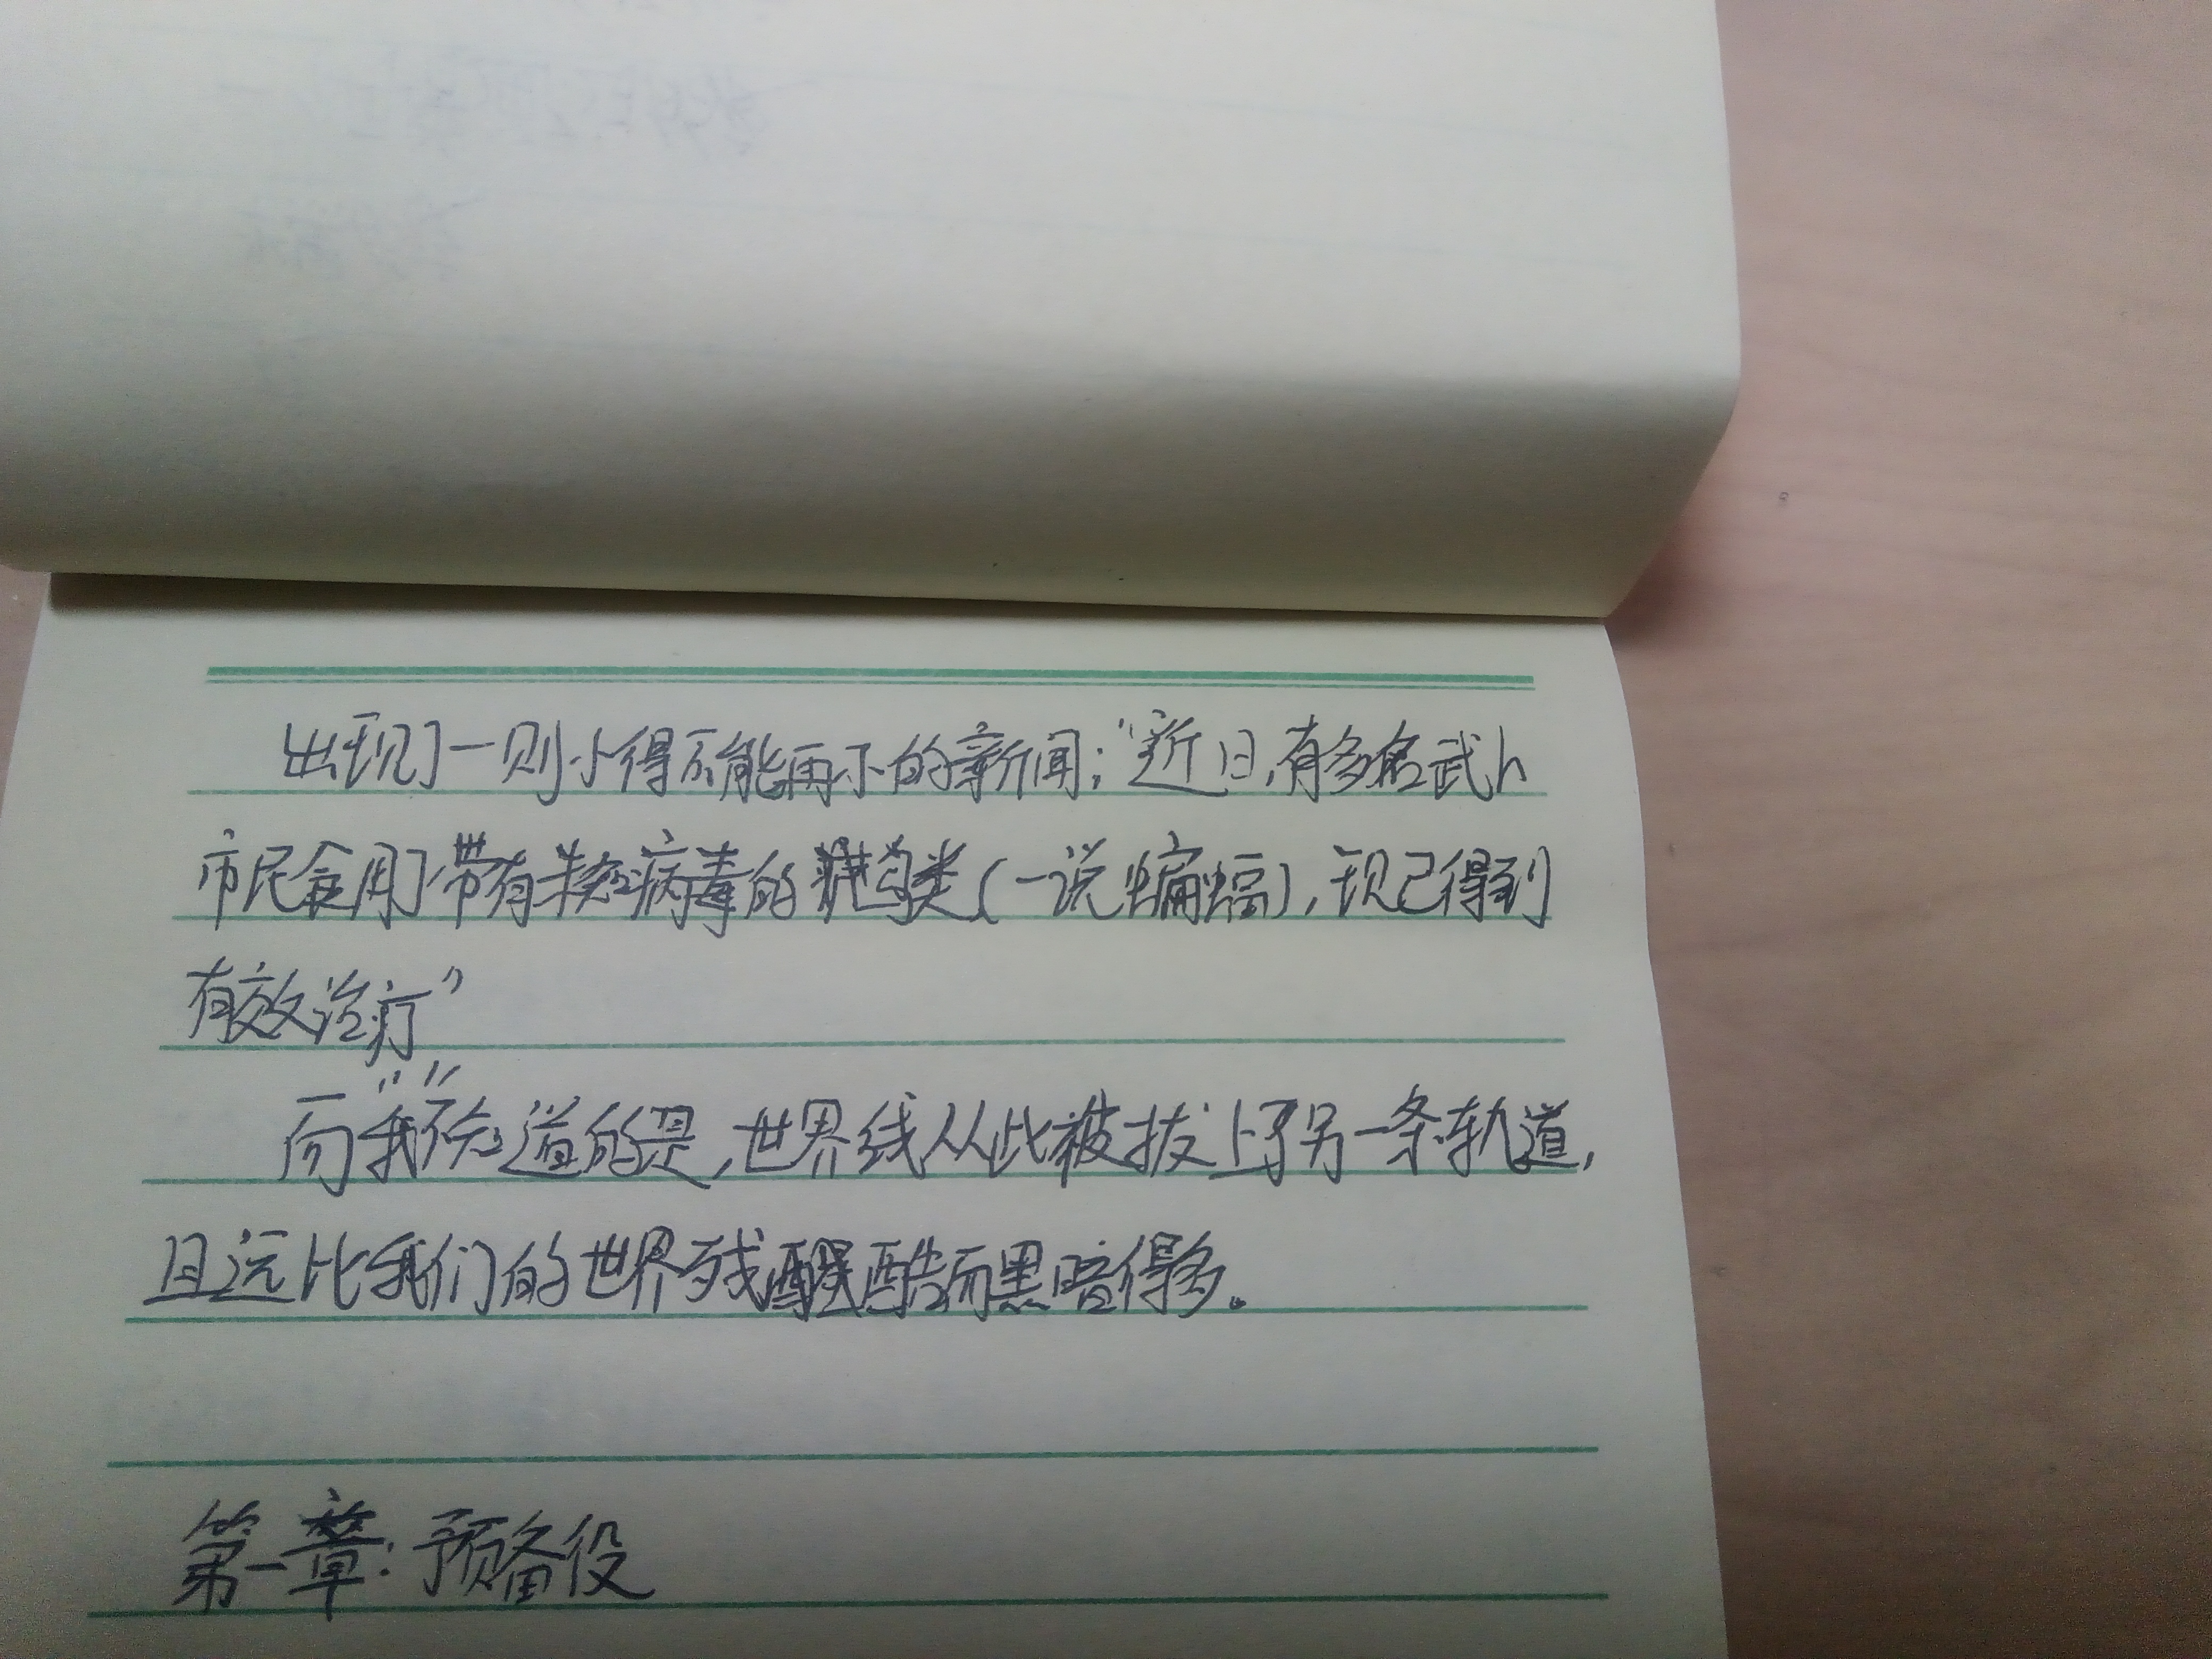 出现了一则小得不能再小的新闻；“近日，有多名武h
市民食用了带有未知病毒的类（一说蝙蝠），现已得到
有效治疗”
而“我”不知道的是，世界线从此被拔上了另一条轨道，
且远比我们的世界残酷而黑暗得多。
第一章：预备役